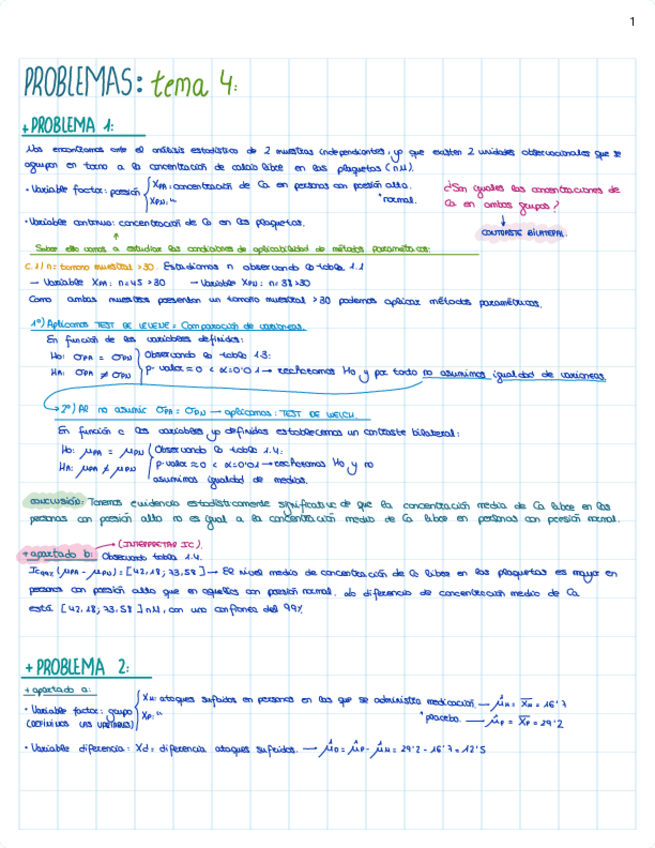 1
PROBLEMAS: tema 4:
+ PROBLEMA 1:
Nos encontramos ante el análisis estadístico de 2 muestras independientes, ya que existen 2 unidades observacionales que se
agrupan en torno a la concentración de calcio libre en las plaquetas (nM).
· Variable factor: presión { XPA: concentración de Ca en personas con presión alta.
XPN: " " normal.
¿Son iguales las concentraciones de
Ca en ambos grupos?
↓
CONTRASTE BILATERAL.
· Variable continua: concentración de Ca en las plaquetas.
↑
Sabido ello vamos a estudiar las condiciones de aplicabilidad de métodos paramétricos:
C.1) n = tamaño muestral > 30. Estudiamos n observando la tabla 1.1
— Variable XPA: n=45 > 30 — Variable XPN: n=38 > 30
Como ambas muestras presentan un tamaño muestral > 30 podemos aplicar métodos paramétricos.
1º) Aplicamos TEST DE LEVENE = Comparación de varianzas.
En función de las variables definidas:
H0: σPA = σPN } Observando la tabla 1.3:
HA: σPA ≠ σPN } p-valor ≈ 0 < α=0'01 → rechazamos H0 y por tanto no asumimos igualdad de varianzas
2º) Al no asumir σPA = σPN → aplicamos: TEST DE WELCH.
En función a las variables ya definidas establecemos un contraste bilateral:
H0: μPA = μPN { Observando la tabla 1.4:
HA: μPA ≠ μPN { p-valor ≈ 0 < α=0'01 → rechazamos H0 y no
asumimos igualdad de medias.
CONCLUSIÓN: Tenemos evidencia estadísticamente significativa de que la concentración media de Ca libre en las
personas con presión alta no es igual a la concentración media de Ca libre en personas con presión normal.
+ apartado b: → (INTERPRETAR IC). Observando tabla 1.4.
IC99% (μPA - μPN) = [42,18; 73,58] → El nivel medio de concentración de Ca libre en las plaquetas es mayor en
personas con presión alta que en aquellas con presión normal. La diferencia de concentración media de Ca
está [42,18; 73,58] nM, con una confianza del 99%
+ PROBLEMA 2:
+ apartado a:
· Variable factor: grupo { XM: ataques sufridos en personas en las que se administra medicación — μ̂M = X̄M = 16'7
(DEFINIMOS LAS VARIABLES) XP: " " placebo. — μ̂P = X̄P = 29'2
· Variable diferencia: Xd = diferencia ataques sufridos. → μ̂D = μ̂P - μ̂M = 29'2 - 16'7 = 12'5